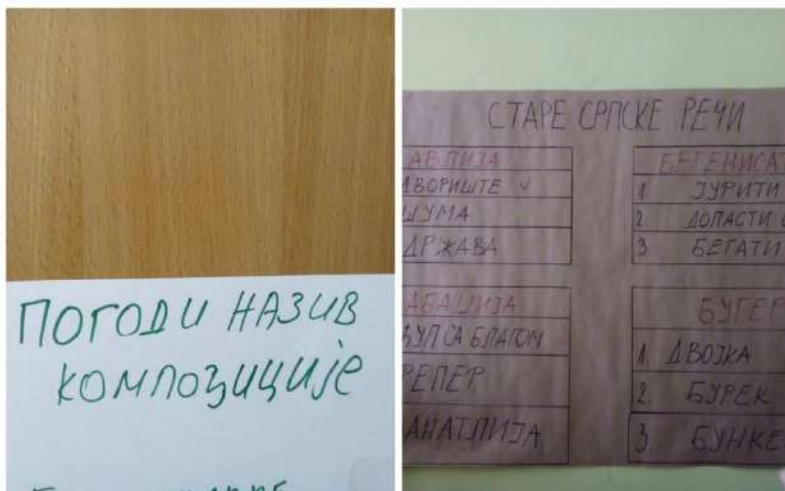 ПОГОДИ НАЗИВ
КОМПОЗИЦИЈЕ
СТАРЕ СРПСКЕ РЕЧИ
АВЛИЈА
ДВОРИШТЕ
ШУМА
ДРЖАВА
БЕГЕНИСА
1 ЈУРИТИ
2 ДОПАСТИ
3. БЕГАТИ
АБАЏИЈА
САБЛАГОМ
РЕПЕР
АНАТЛИЈА
БУГЕР
1. ДВОЈКА
2. БУРЕК
3. БУНКЕ